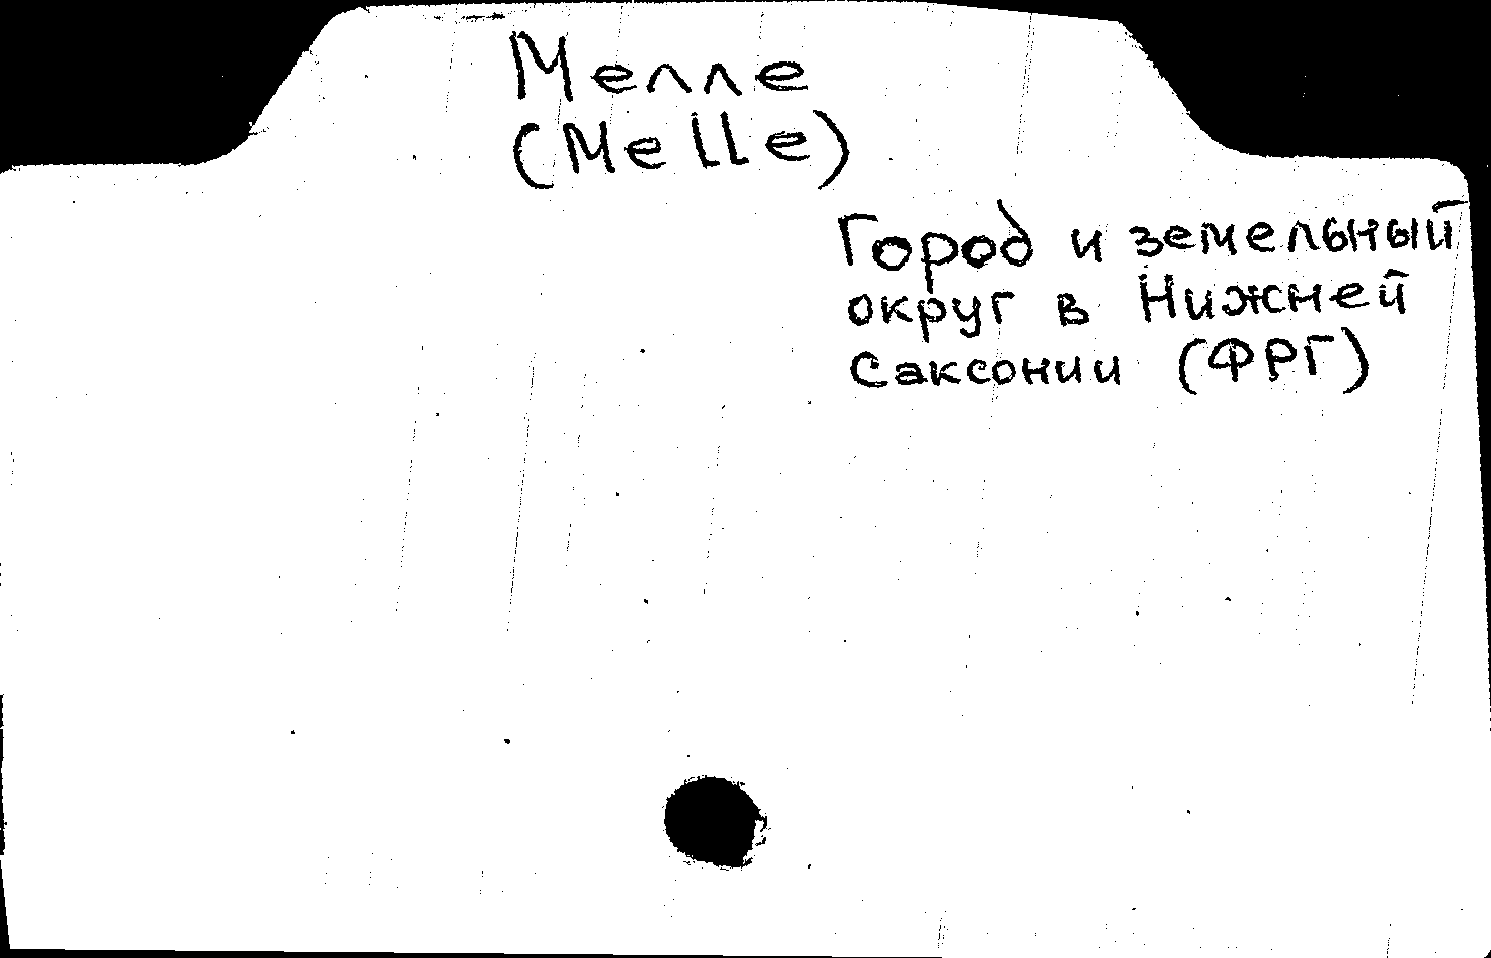 Мелле
(Melle)
Город и земельный
округ в Нижней
Саксонии (ФРГ)